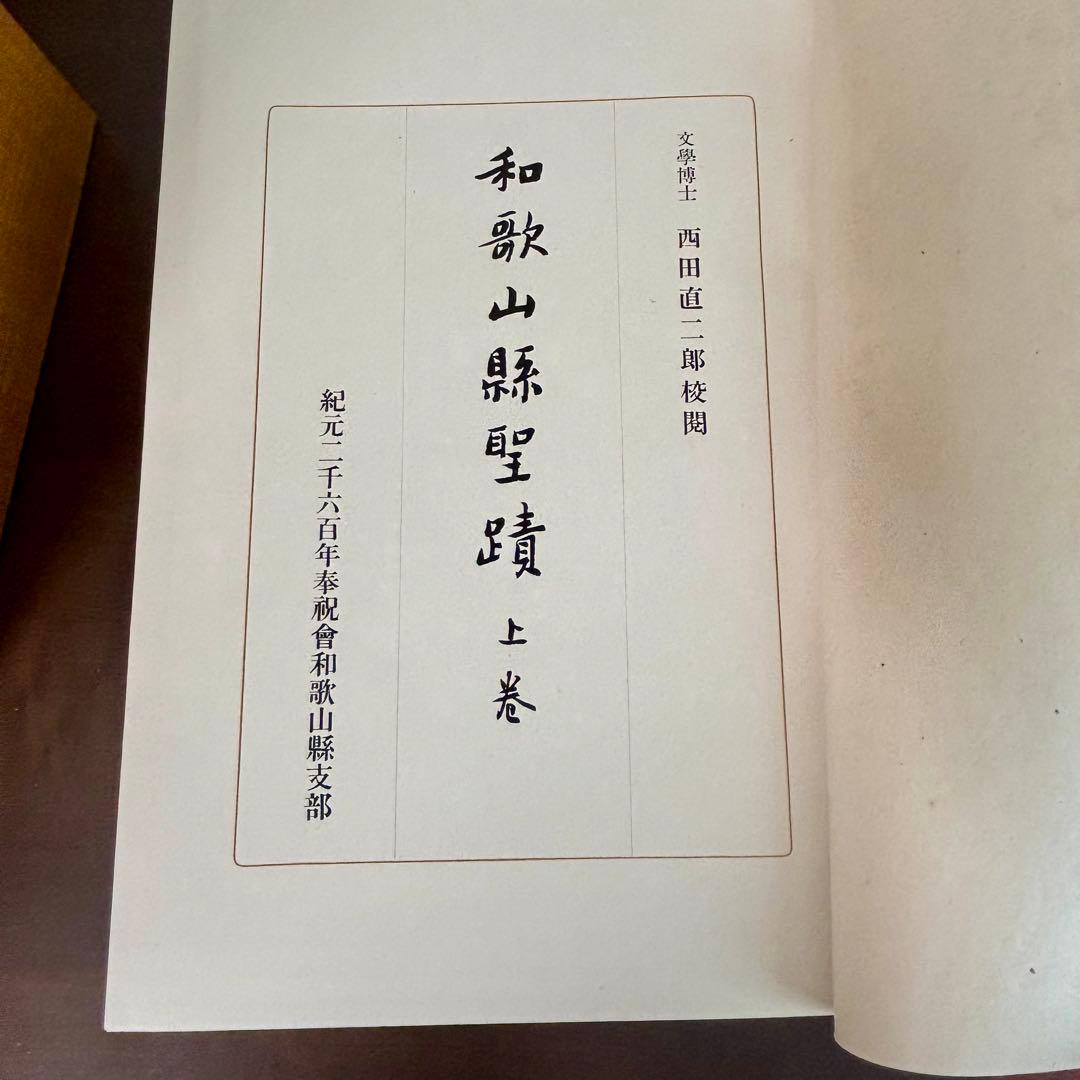 文學博士 西田直二郎校閱
和歌山縣聖蹟 上卷
紀元二千六百年奉祝會和歌山縣支部